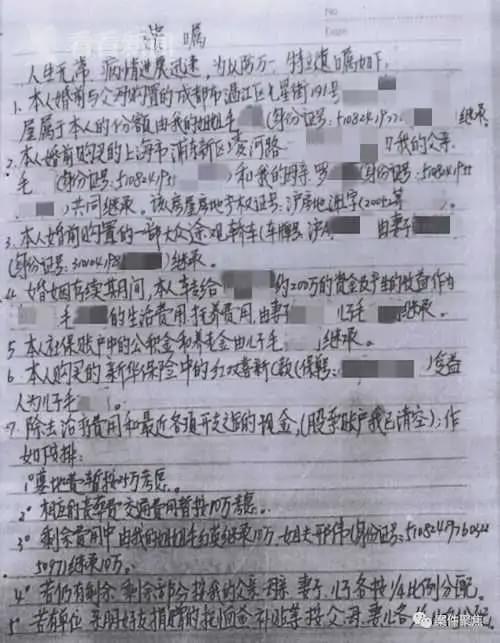 No
Date
看看新闻
遗嘱
人生无常 病情进展迅速,为以防万一,特立遗嘱如下:
1、本人婚前与父母购置的成都市温江区七星街191号
屋属于本人的份额由我的姐姐毛 (身份证号:5108241977 )继承。
2、本人婚前购买的上海市浦东新区凌河路 由我的父亲
毛 (身份证号:510824195 )和我的母亲罗 (身份证号:51082495
)共同继承。该房屋房地产权证号:沪房地浦字(2005)第
3、本人婚前购置的一部大众途观轿车(车牌号:沪A 由妻子
(身份证号:310104198 )继承。
4、婚姻存续期间,本人转给 约200万的资金及产生的收益作为
毛 的生活费用、抚养费用,由妻子 、儿子毛 继承。
5、本人社保账户中的公积金和养老金由儿子毛 继承。
6、本人购买的新华保险中的红双喜新C款(保单号: )受益
人为儿子毛 。
7、除去治疗费用和最近各项开支之后的现金,(股票账户我已清空),作
如下安排:
1° 墓地费暂按 万考虑。
2° 相应的丧葬费交通费用暂按10万考虑。
3° 剩余费用中由我的姐姐毛 继承10万,姐夫 (身份证号:510824
)继承10万。
4° 若仍有剩余,剩余部分按我的父亲、母亲、妻子、儿子各按1/4比例分配。
5° 若有单位、亲朋好友捐赠的抚恤金、补贴等按父、母、妻、儿各
案件聚焦